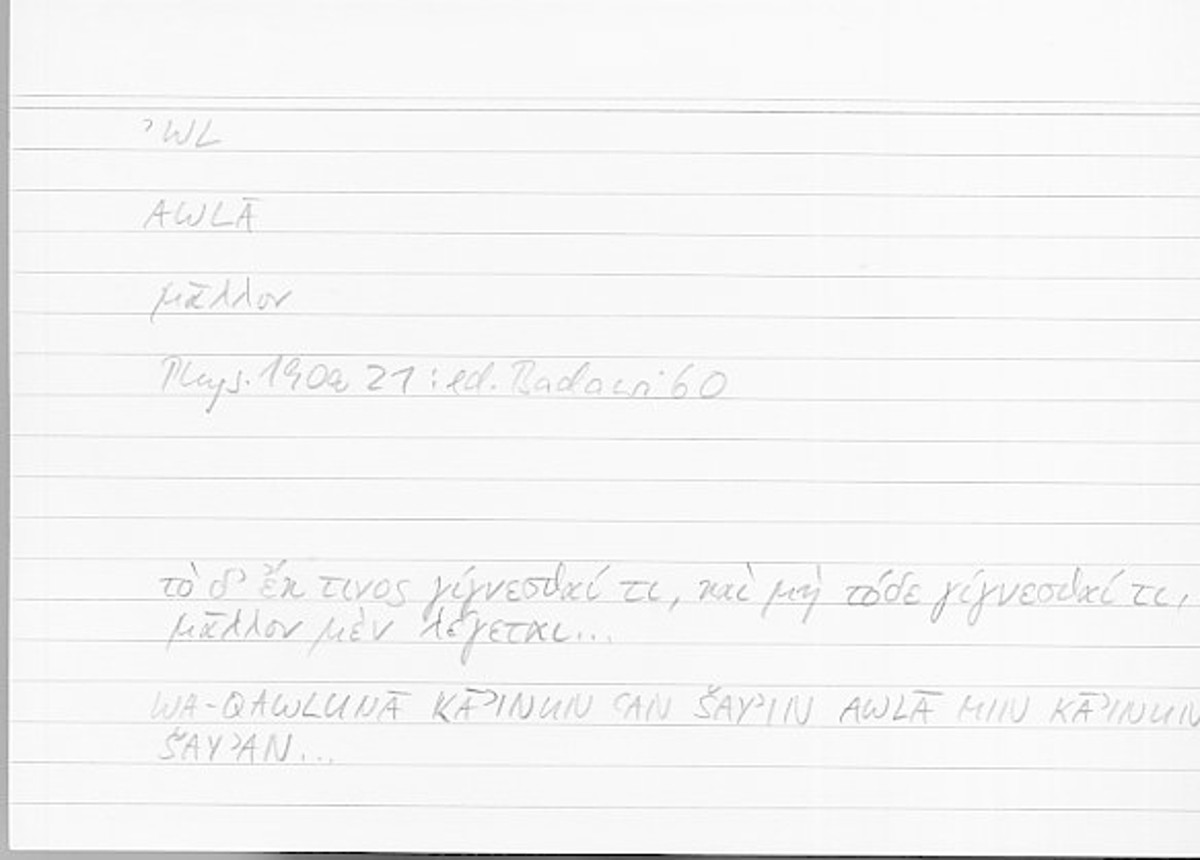 ʾWL
AWLĀ
μᾶλλον
Phys. 190a 21 : ed. Badawi 60
τὸ δ’ ἔκ τινος γίγνεσθαί τι, καὶ μὴ τόδε γίγνεσθαί τι,
μᾶλλον μὲν λέγεται...
WA-QAWLUNĀ KĀʾINUN ʿAN ŠAYʾIN AWLĀ MIN KĀʾINUN
ŠAYʾAN...